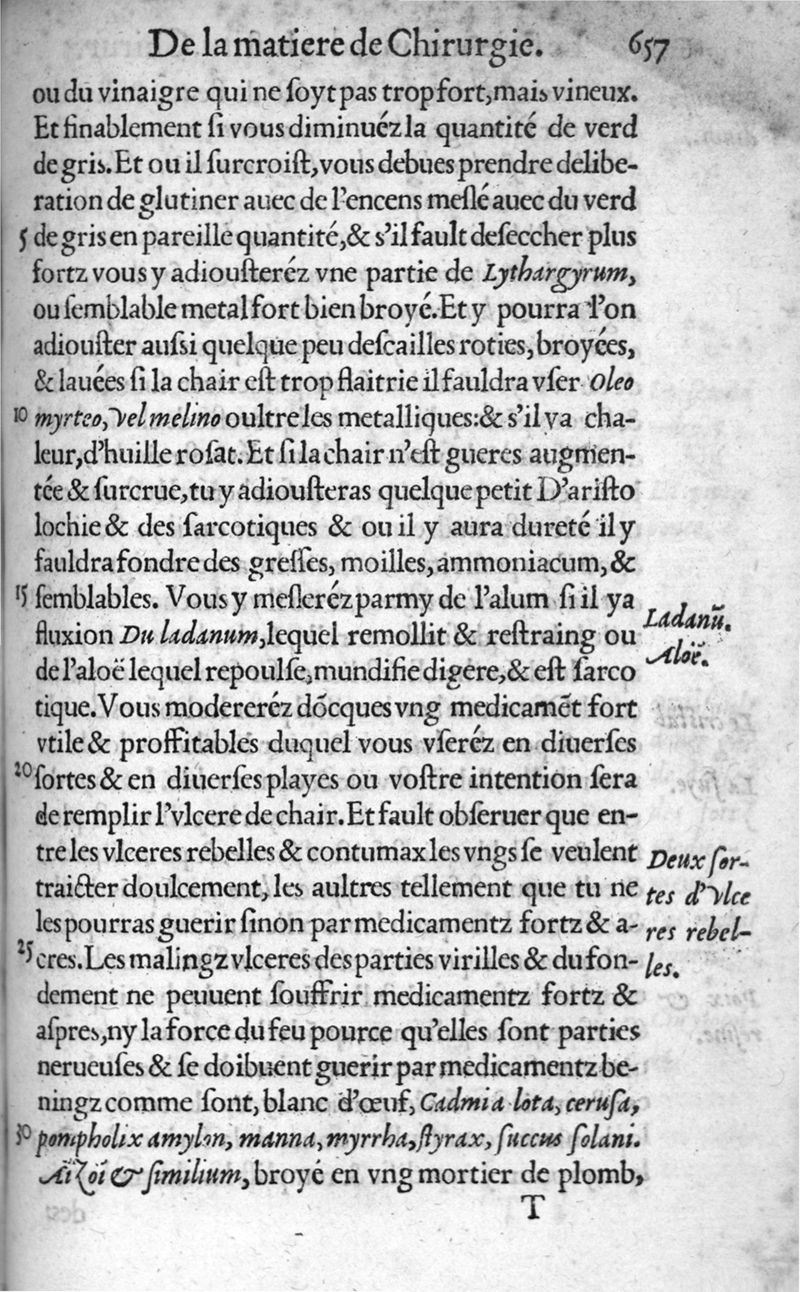 De la matiere de Chirurgie. 657
ou du vinaigre qui ne ſoyt pas trop fort, mais vineux.
Et finablement ſi vous diminuéz la quantité de verd
de gris. Et ou il ſurcroiſt, vous debues prendre delibe-
ration de glutiner auec de l'encens meſlé auec du verd
5 de gris en pareille quantité, & s'il fault deſeccher plus
fortz vous y adiouſteréz vne partie de Lythargyrum,
ou ſemblable metal fort bien broyé. Et y pourra l'on
adiouſter auſsi quelque peu deſcailles roties, broyées,
& lauées ſi la chair eſt trop flaitrie il fauldra vſer Oleo
10 myrteo, vel melino oultre les metalliques: & s'il ya cha-
leur, d'huille roſat. Et ſi la chair n'eſt gueres augmen-
tée & ſurcrue, tu y adiouſteras quelque petit D'ariſto
lochie & des ſarcotiques & ou il y aura dureté il y
fauldra fondre des greſſes, moilles, ammoniacum, &
15 ſemblables. Vous y meſleréz parmy de l'alum ſi il ya
fluxion Du ladanum, lequel remollit & reſtraing ou
Ladanū.
de l'aloë lequel repoulſe, mundifie digere, & eſt ſarco
Aloë.
tique. Vous modereréz dõcques vng medicamēt fort
vtile & proffitables duquel vous vſeréz en diuerſes
20 ſortes & en diuerſes playes ou voſtre intention ſera
de remplir l'vlcere de chair. Et fault obſeruer que en-
tre les vlceres rebelles & contumax les vngs ſe veulent
Deux ſor-
traicter doulcement, les aultres tellement que tu ne
tes d'vlce
les pourras guerir ſinon par medicamentz fortz & a-
res rebel-
25 cres. Les malingz vlceres des parties virilles & du fon-
les.
dement ne peuuent ſouffrir medicamentz fortz &
aſpres, ny la force du feu pource qu'elles ſont parties
nerueuſes & ſe doibuent guerir par medicamentz be-
ningz comme ſont, blanc d'œuf, Cadmia lota, ceruſa,
30 pompholix amylon, manna, myrrha, ſtyrax, ſuccus ſolani.
Aïzoi & ſimilium, broyé en vng mortier de plomb,
T